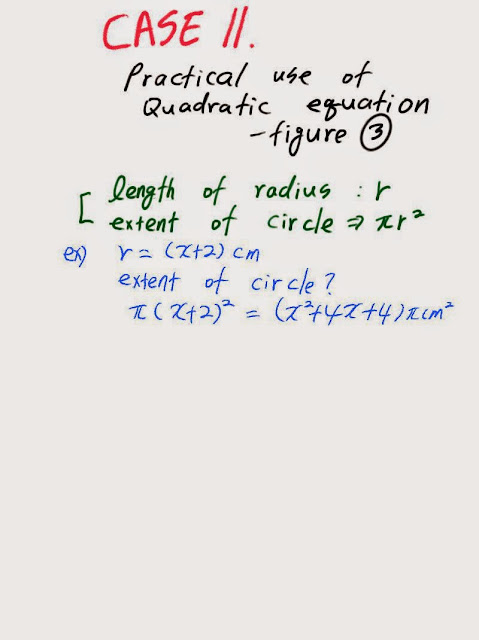 CASE 11.
Practical use of
Quadratic equation
-figure ③
[ length of radius : r
extent of circle ⇒ πr²
ex) r = (x+2) cm
extent of circle?
π(x+2)² = (x²+4x+4)πcm²